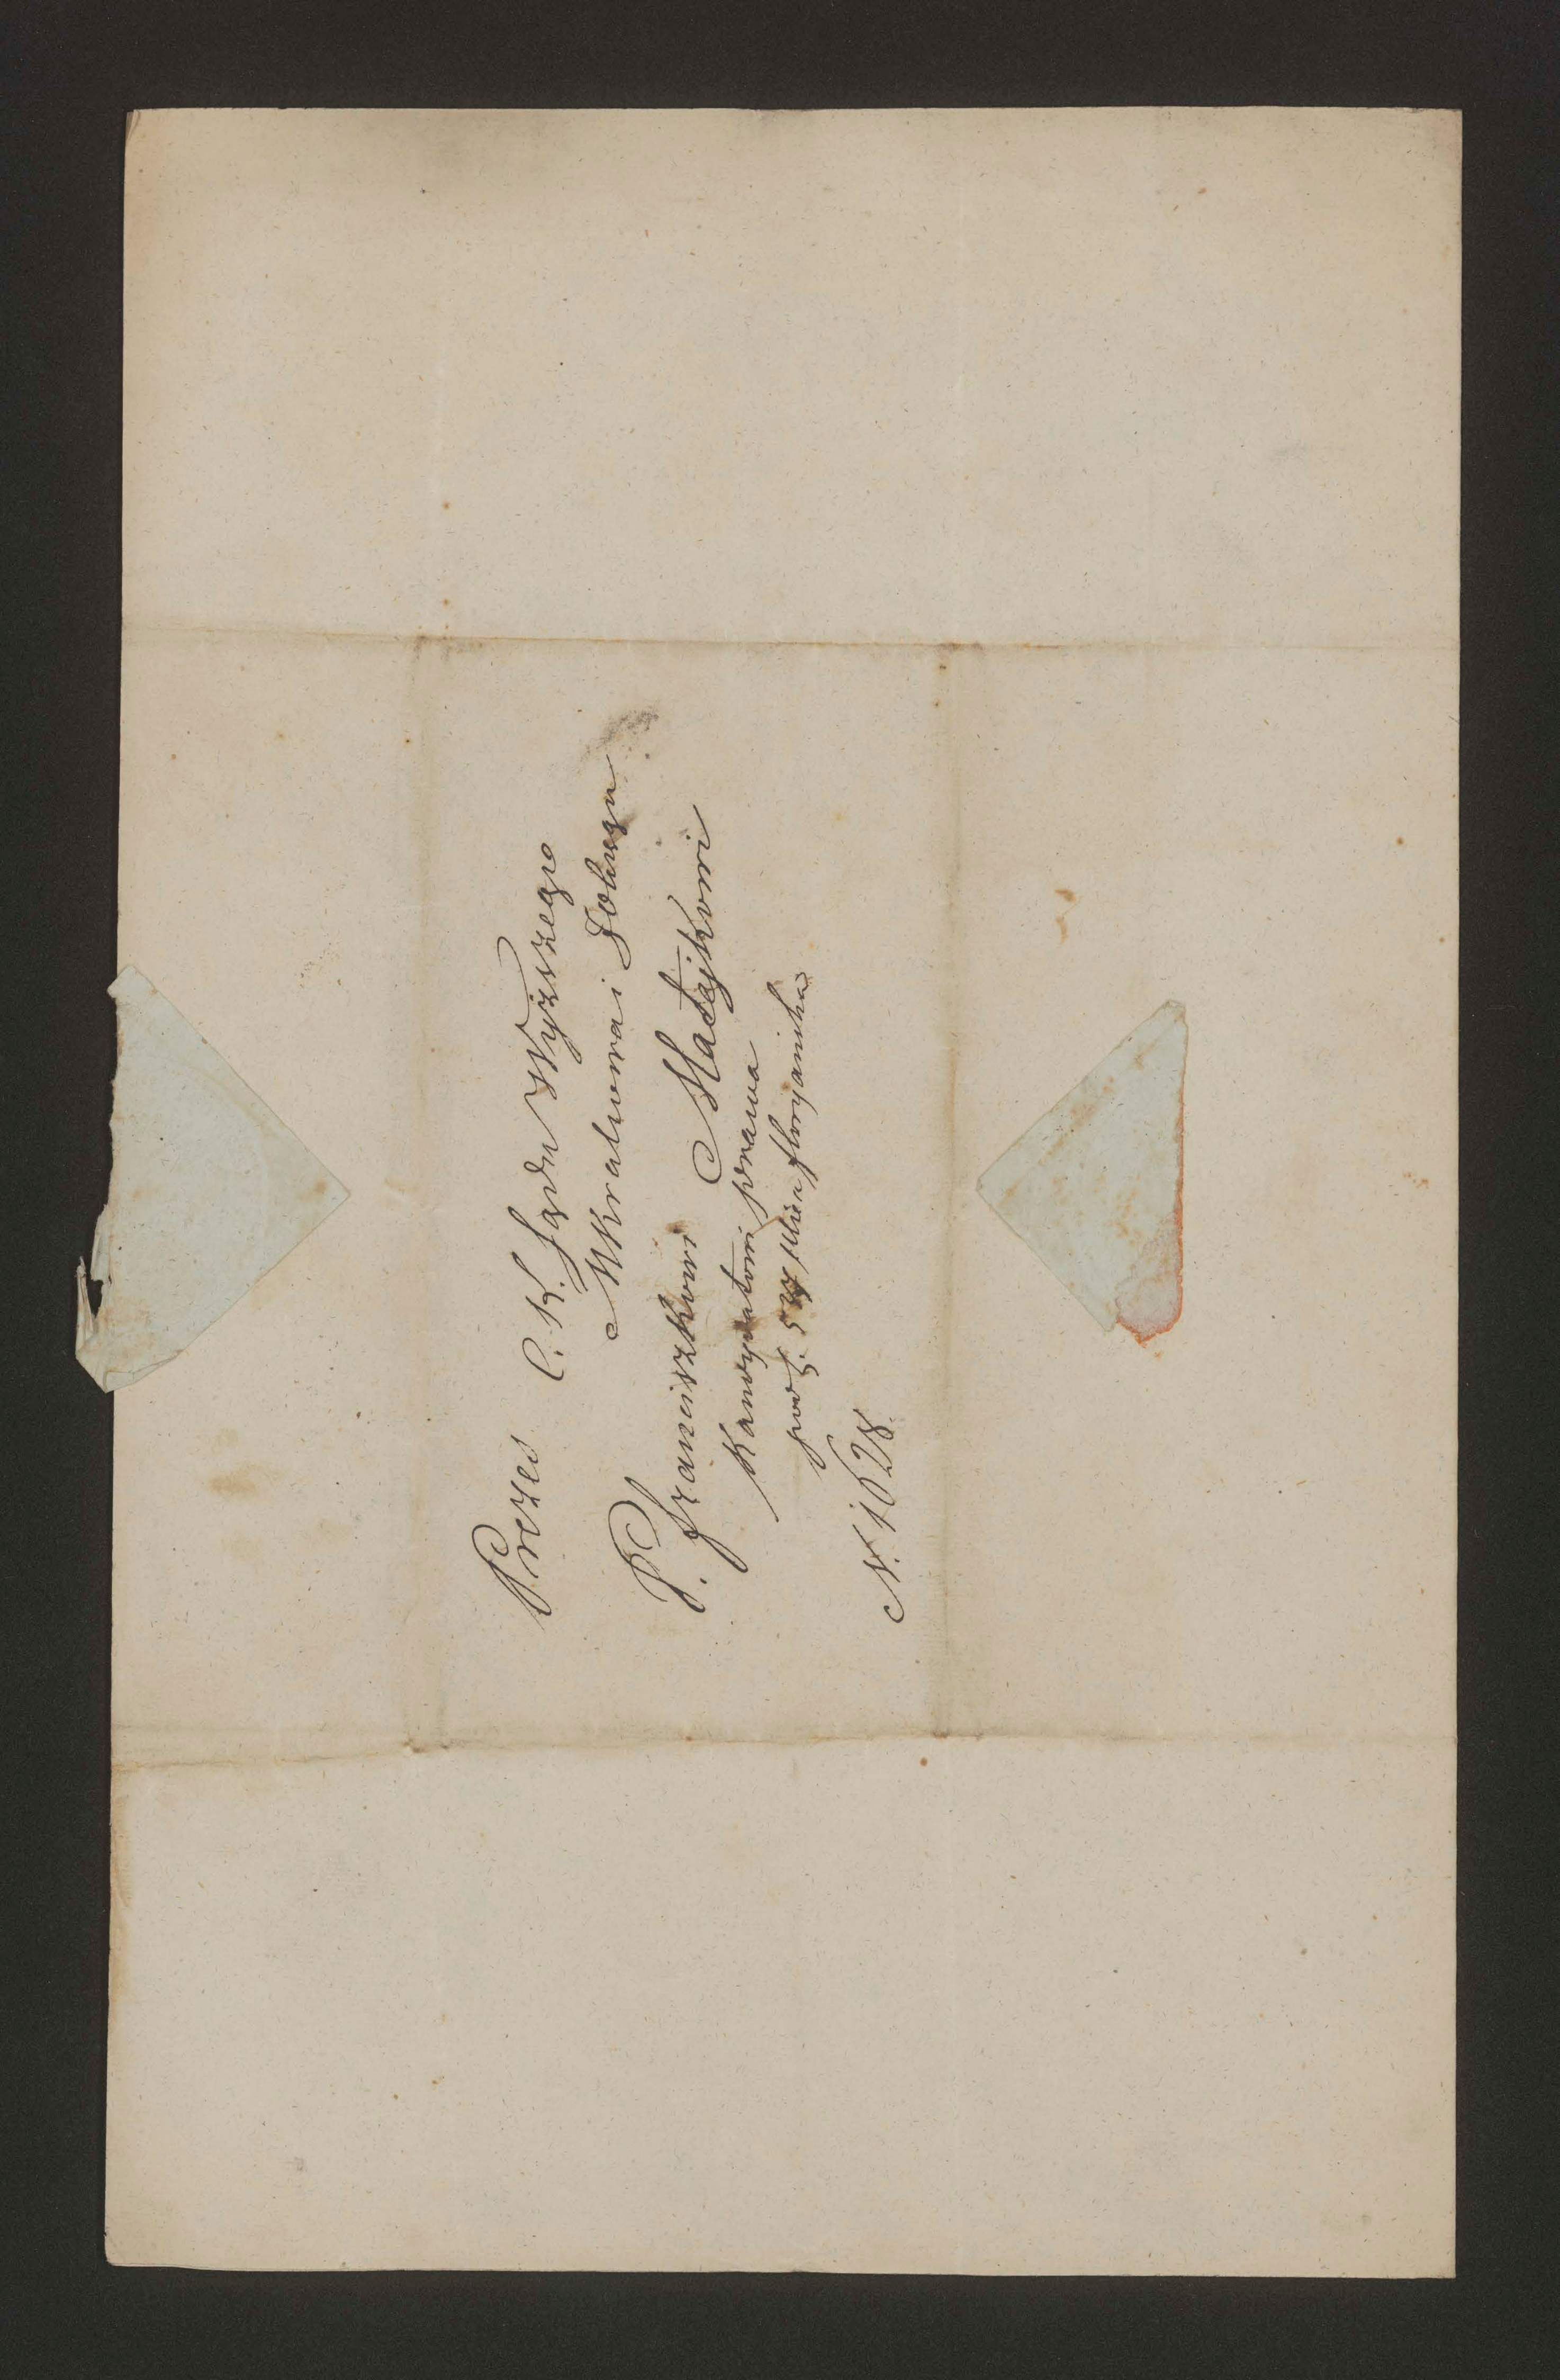 Prezes C. K. Sądu Wyższego
W Krakowa i
P. Franciszkowi Matejkowi
Kandydatowi prawa
pod L. Ulica floryanska
N. 1628.